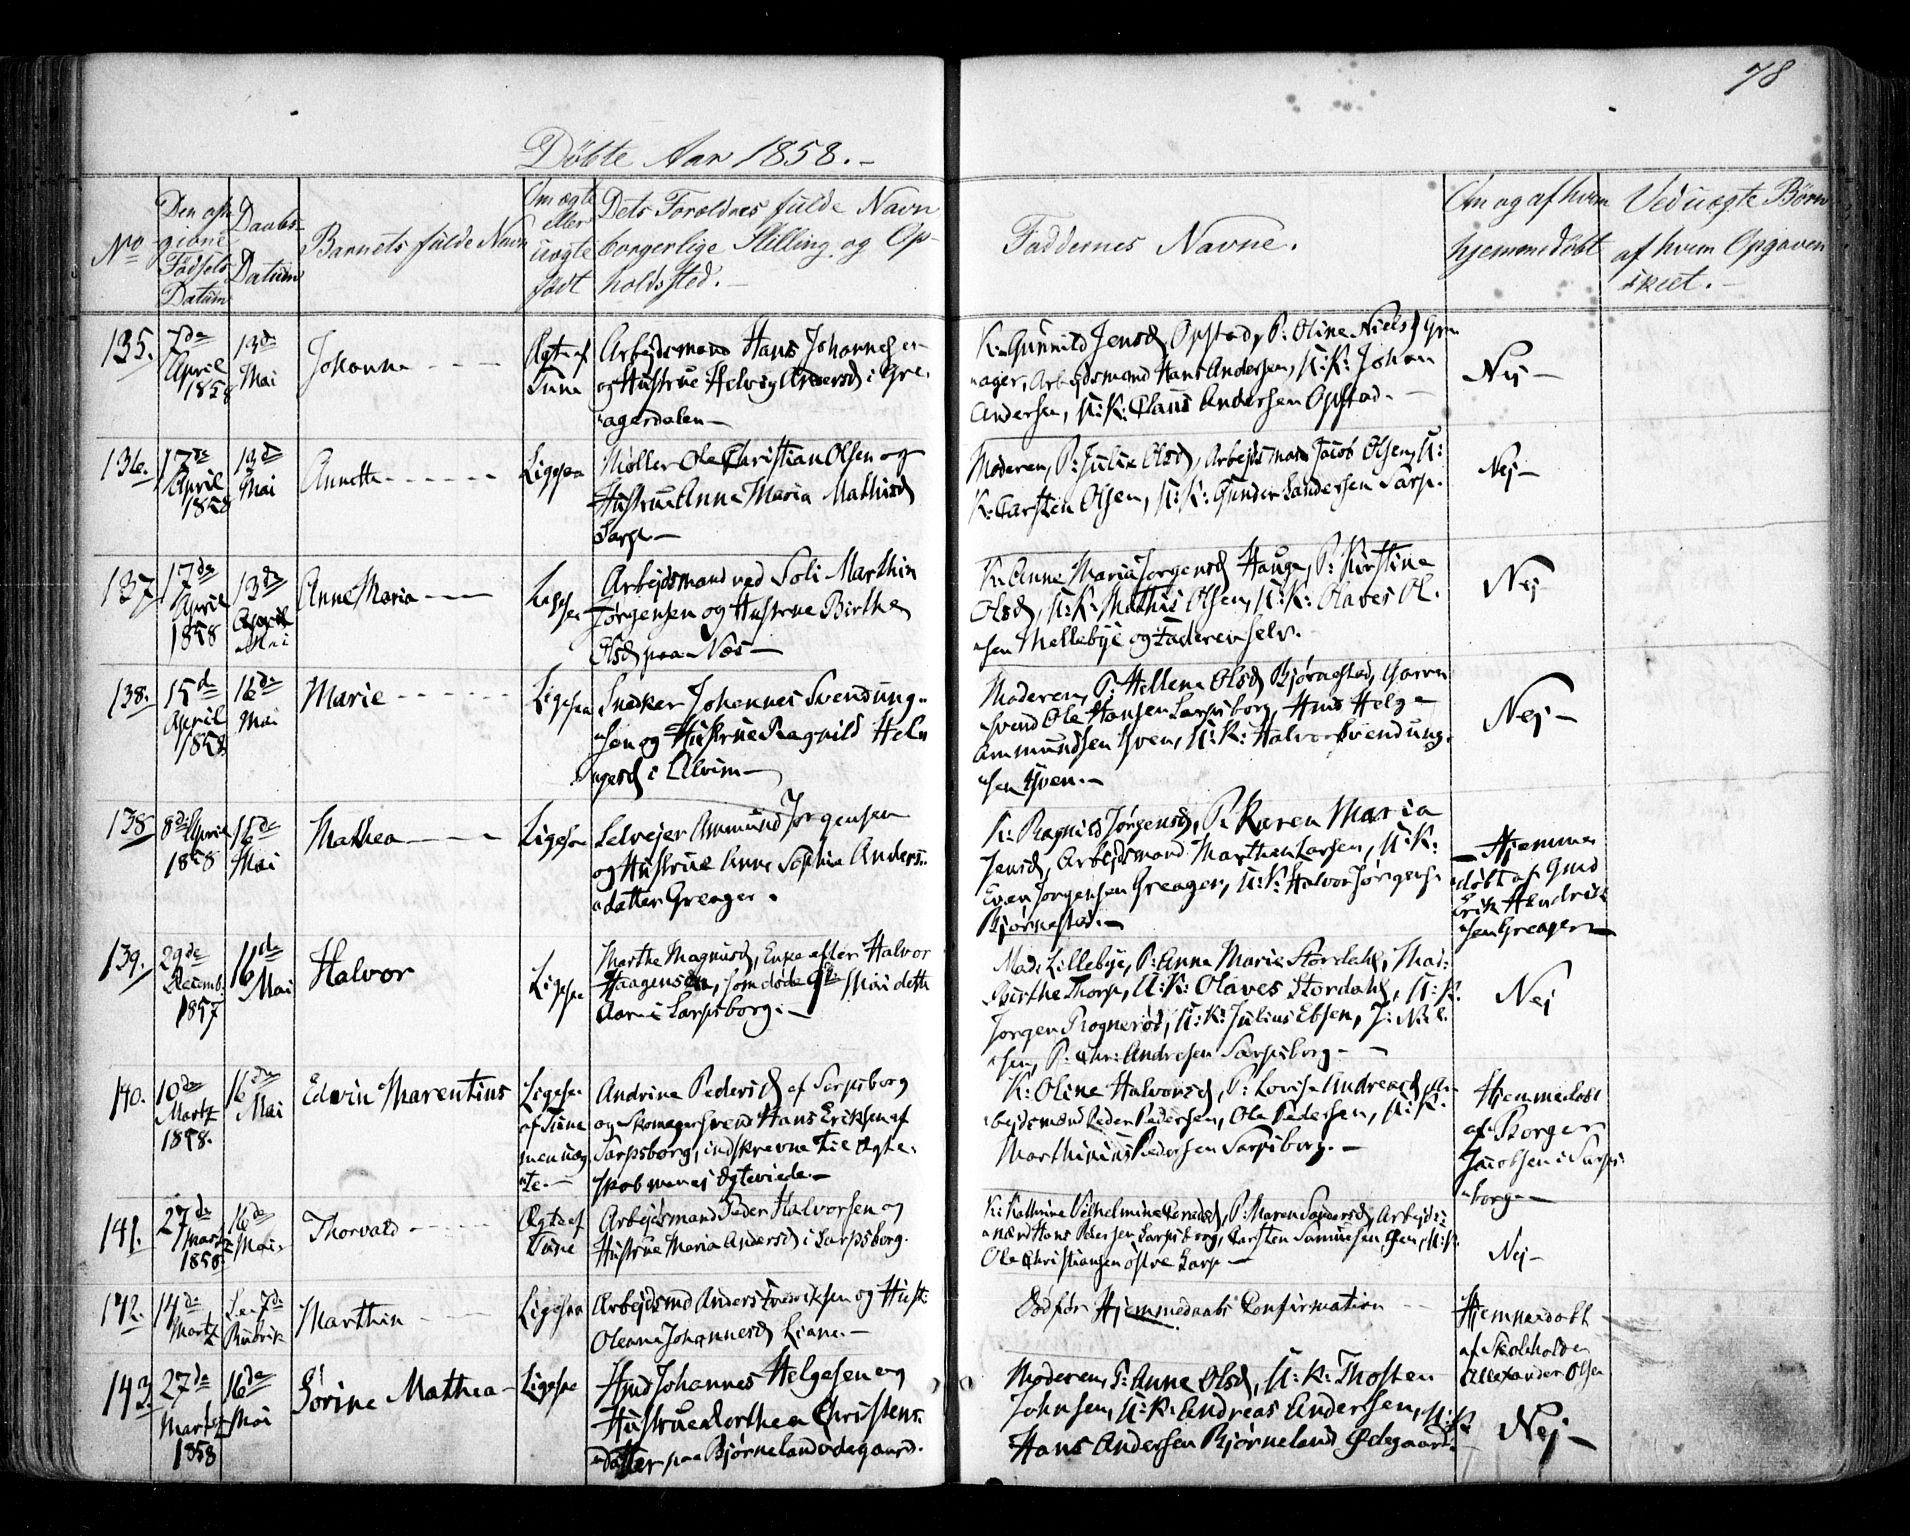 78
Döbte Aar 1858.-
No
Den
Fødsels
Datum
Daabs-
Datum
Barnets fulde Navn
Om ægte
eller
uægte
födt
Dets Foreldres fulde Navn
borgerlige Stilling og Op-
holdssted.-
Faddernes Navne.
Om og af hvem
hjemmedöbt
Ved uægte Børn
af hvem Opgaven
skeet.-
135.
7de
April
1858
13de
Mai
Johanne
Ægte af
Tune
Arbejdsmand Hans Johannesen
og Hustrue Helvig Andersd i Gre-
agerdalen-
K: Gunnild Jensd Opstad, P: Oline Nielsd Gre
ager, Arbejdsmand Hans Andersen, U:K: Johan
Andersen, U:K: Claus Andersen Opstad.-
Nej-
136.
17de
April
1858
13de
Mai
Annette
Ligesaa
Møller Ole Christian Olsen og
Hustrue Anne Maria Mathisd
Sarp.-
Moderen, P: Julie Olsd, Arbejdsmand Jacob Olsen, U:
K: Carsten Olsen, U:K: Gunder Sandersen Sarp.
Nej-
137
17de
April
1858
13de
April
Mai
Anne Maria
Ligesaa
Arbejdsmand ved Soli Marthin
Jørgensen og Hustrue Birthe
Olsd paa Næs-
K: Anne Maria Jørgensd Hauge, P: Kirstine
Olsd, U:K: Mathis Olsen, U:K: Olaves Ol-
sen Mellebye og Faderen selv.
Nej
138.
15de
April
1858
16de
Mai
Marie
Ligesaa
Snedker Johannes Svendung-
sen og Hustrue Ragnild Hel-
gesd i Alvim-
Moderen, P: Hellene Olsd Bjørnstad, Garver
svend Ole Hansen Sarpsborg, Hmd Helge
Ammundsen Yven, U:K: Halvor Svendung-
sen Yven.-
Nej-
138
8de April
1858
16de
Mai
Mathea
Ligesaa
Selvejer Ammund Jørgensen
og Hustrue Anne Sophie Anders-
datter Greager.
K: Ragnild Jørgensd, P: Karen Maria
Jensd, Arbejdsmand Marthen Larsen, U:K:
Even Jørgensen Greager, U:K: Halvor Jørgens.
Bjørnestad.-
Hjemme
døbt af Gmd
Erik Hendrik
sen Greager
139.
29de
Decemb.
1857
16de
Mai
Halvor
Ligesaa
Marthe Magnusd, Enke efter Halvor
Haagensen, som døde Mai dette
Aar i Sarpsborg.-
Mad: Lillebye, P: Anne Marie Stordahl, Mad:
Birthe Thorp, U:K: Olaves Stordahl, U:K:
Jørgen Rognerød, U:K: Julius Ebsen, J: Niel
sen, P: Chr: Andresen Sarpsborg-
Nej
140.
10de
Martz
1858.
16de
Mai
Edvin Marentius
Ligesaa
af Tune
men uæg
te.-
Andrine Pedersd af Sarpsborg
og Skomagersvend Hans Eriksen af
Sarpsborg, indskrevne til Ægte-
skab men ej Ægteviede-
K: Oline Halvorsd, P: Lovise Andreasd Ar-
bejdsmand Peder Pedersen, Ole Pedersen, U:K:
Marthinius Pedersen Sarpsborg.-
Hjemmedøbt
af Borger
Jacobsen i Sarps-
borg-
141.
27de
Martz
1858
16de
Mai
Thorvald
Ægte af
Tune
Arbejdsmand Peder Halvorsen og
Hustrue Maria Andersd i Sarpsborg.
K: Kathrine Vilhelmine, P: Maren Sandersd, Arbejds-
mænd Hans Petersen Sarpsborg, Carsten Samuelsen, U:K:
Ole Christiansen østre Sarp-
Nej-
142.
14de
Martz
See 7de
Rubrik
Marthin
Ligesaa
Arbejdsmd Anders Fredriksen og Hust:
Oleane Johannesd Liane.-
Død før Hjemmedaabs Confirmation
Hjemmedøbt
af Skoleholder
Allexander Olsen
143.
27de
Martz
1858
16de
Mai
Sörine Mathea-
Ligesaa
Hmd Johannes Helgesen og
Hustrue Dorthea Christens-
datter paa Bjørneland ødegaard.
Moderen, P: Anne Olsd, U:K: Thosten
Johnsen, U:K: Andreas Andersen, U:K:
Hans Andersen Bjørneland Ødegaard.
Nej-